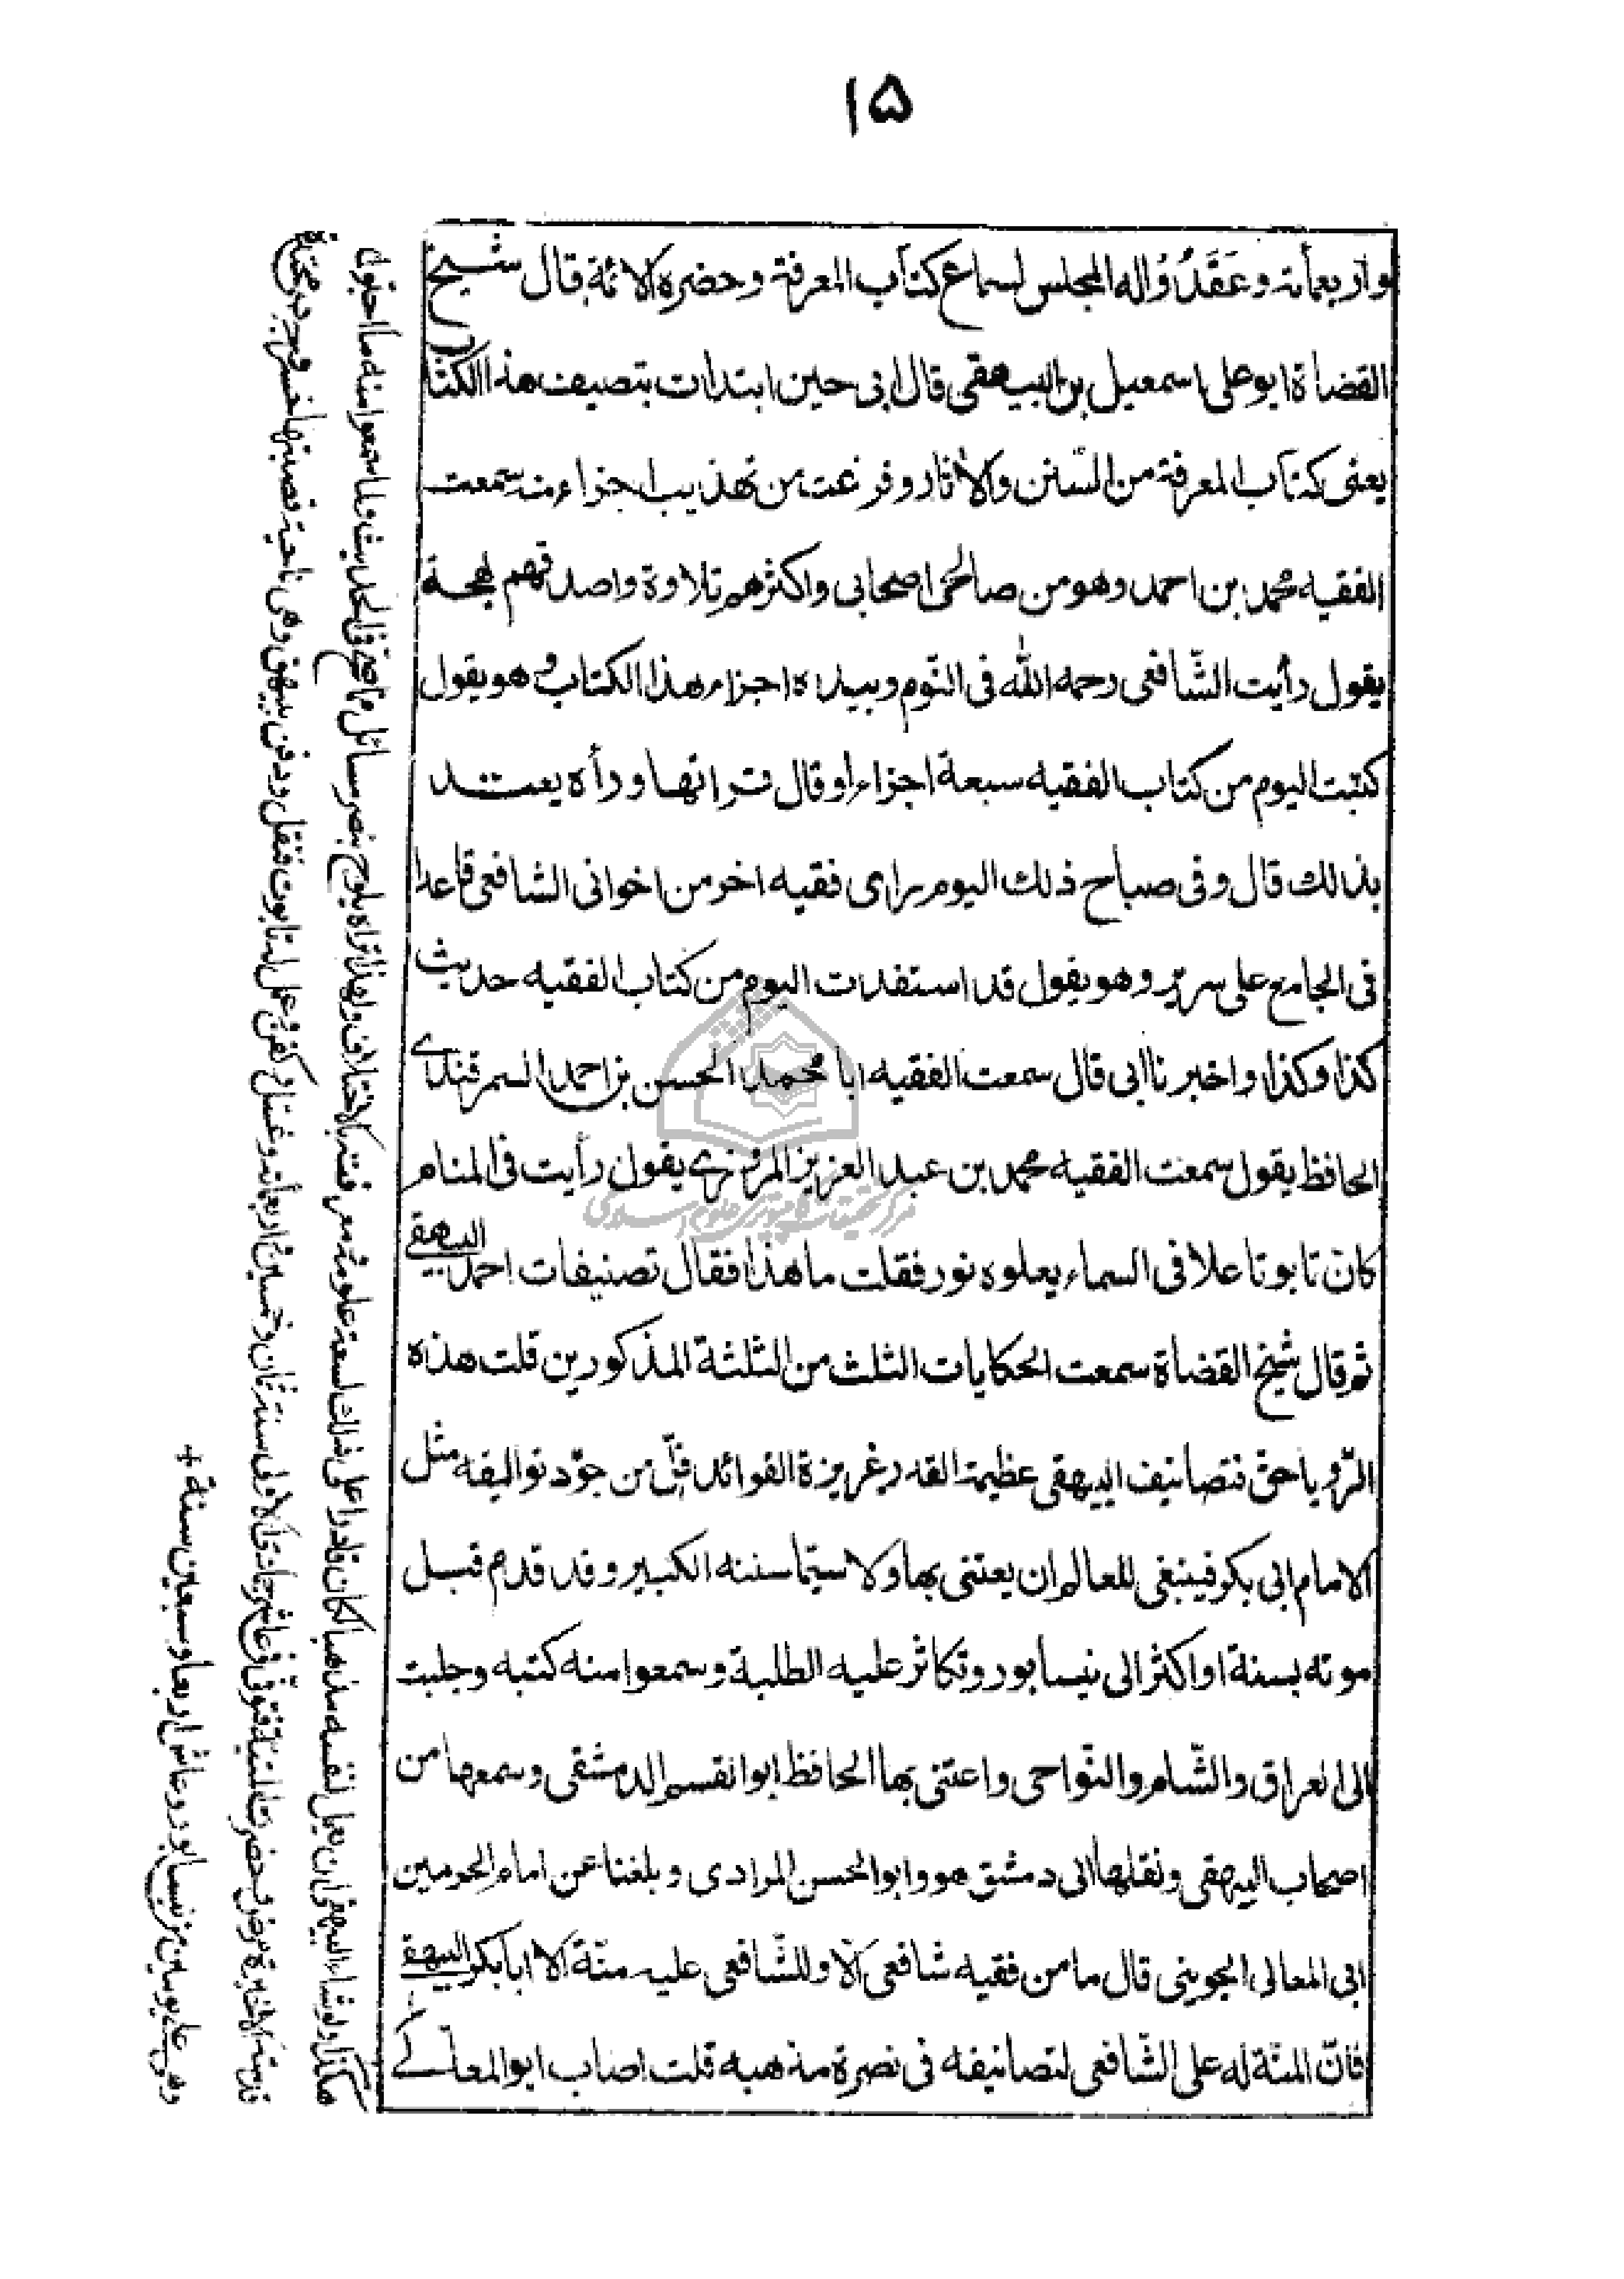 ۱۵
واربعمأته وعَقَدُوْاله المجلس لسماع كتاب المعرفة وحضره الائمة قال شيخ
القضاة ابو على اسمعيل بن البيهقى قال ابى حين ابتدات بتصيف هذا الكتاب
يعنى كتاب المعرفة من السّنن والاثار وفرغت من تهذيب اجزاء منه سمعت
الفقيه محمد بن احمد وهو من صالحى اصحابى واكثرهم تلاوة واصدقهم لهجة
يقول رأيت الشّافعى رحمه الله فى النّوم وبيده اجزاء هذا الكتاب وهو يقول
كتبت اليوم من كتاب الفقيه سبعة اجزاء او قال قراتها ورأه يعتد
بذالك قال وفى صباح ذلك اليوم راى فقيه اخر من اخوانى الشافعى قاعدا
فى الجامع على سرير وهو يقول قد استفدت اليوم من كتاب الفقيه حديث
كذا وكذا واخبرنا ابى قال سمعت الفقيه ابا محمد الحسن بن احمد السمرقندى
الحافظ يقول سمعت الفقيه محمد بن عبد العزيز المروزى يقول رأيت فى المنام
كان تابوتا علا فى السماء يعلوه نور فقلت ما هذا فقال تصنيفات احمد البيهقى
ثم قال شيخ القضاة سمعت الحكايات الثلث من الثلثة المذكورين قلت هذه
الرّويا حق فتصانيف البيهقى عظيمة القدر غزيزة الفوائد قلّ من جوّد تواليفه مثل
الامام ابى بكر فينبغى للعالم ان يعتنى بها ولا سيّما سننه الكبير وقد قدم قبل
موته بسنة او اكثر الى نيسابور وتكاثر عليه الطلبة وسمعوا منه كتبه وجلبت
الى العراق والشّام والنّواحى واعتنى بها الحافظ ابو القسم الدمشقى وسمعها من
اصحاب البيهقى ونقلها الى دمشق هو وابو الحسن المرادى وبلغنا عن امام الحرمين
ابى المعالى الجوينى قال ما من فقيه شافعى الّا وللشّافعى عليه منّة الا ابا بكر البيهقى
فانّ المنّة له على الشّافعى لتصانيفه فى نصرة مذهبه قلت اصاب ابو المعالى
هكذا ولو شاء البيهقى ان يعمل لنفسه مذهبا لكان قادرا على ذلك لسعة علومه ومعرفته بالاختلاف ولهذا تراه يلوح بنصر مسائل مما صح فى الحديث ولما سمعوا منه ما احبوا
قدمته الاخيرة مرض وحضرت المنية فتوفى فى عاشر جمادى الاولى سنة ثمان وخمسين واربعمأته وغسل وكفن وعمل له تابوت فنقل ودفن ببيهق وهى ناحية قصبتها خسروجرد
وهى على يومين من نيسابور وعاش اربعا وسبعين سنة +
مركز تحقيقات كامپيوترى علوم اسلامى